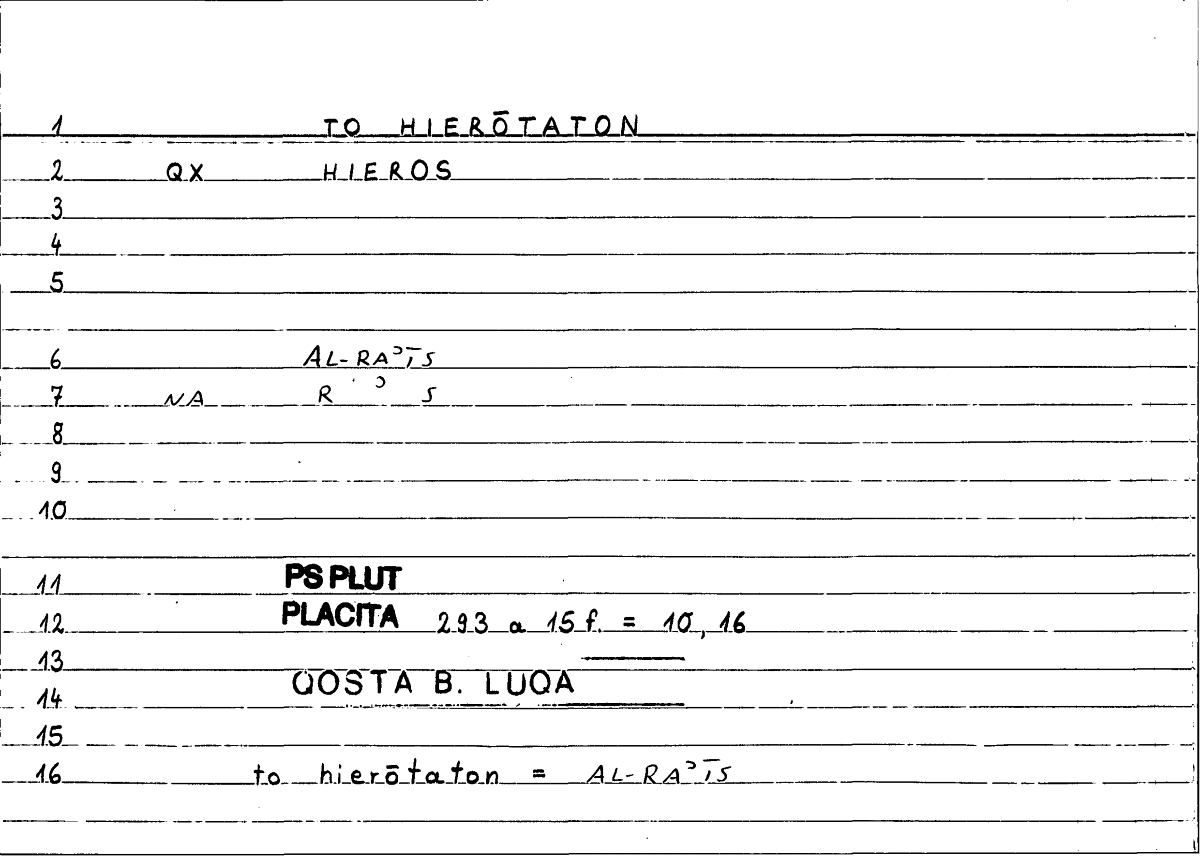 1 TO HIERŌTATON
2 QX HIEROS
3
4
5
6 AL-RAʾĪS
7 NA R ʾ S
8
9
10
11 PS PLUT
12 PLACITA 293 a 15 f. = 10, 16
13
14 QOSTA B. LUQA
15
16 to hierōtaton = AL-RAʾĪS